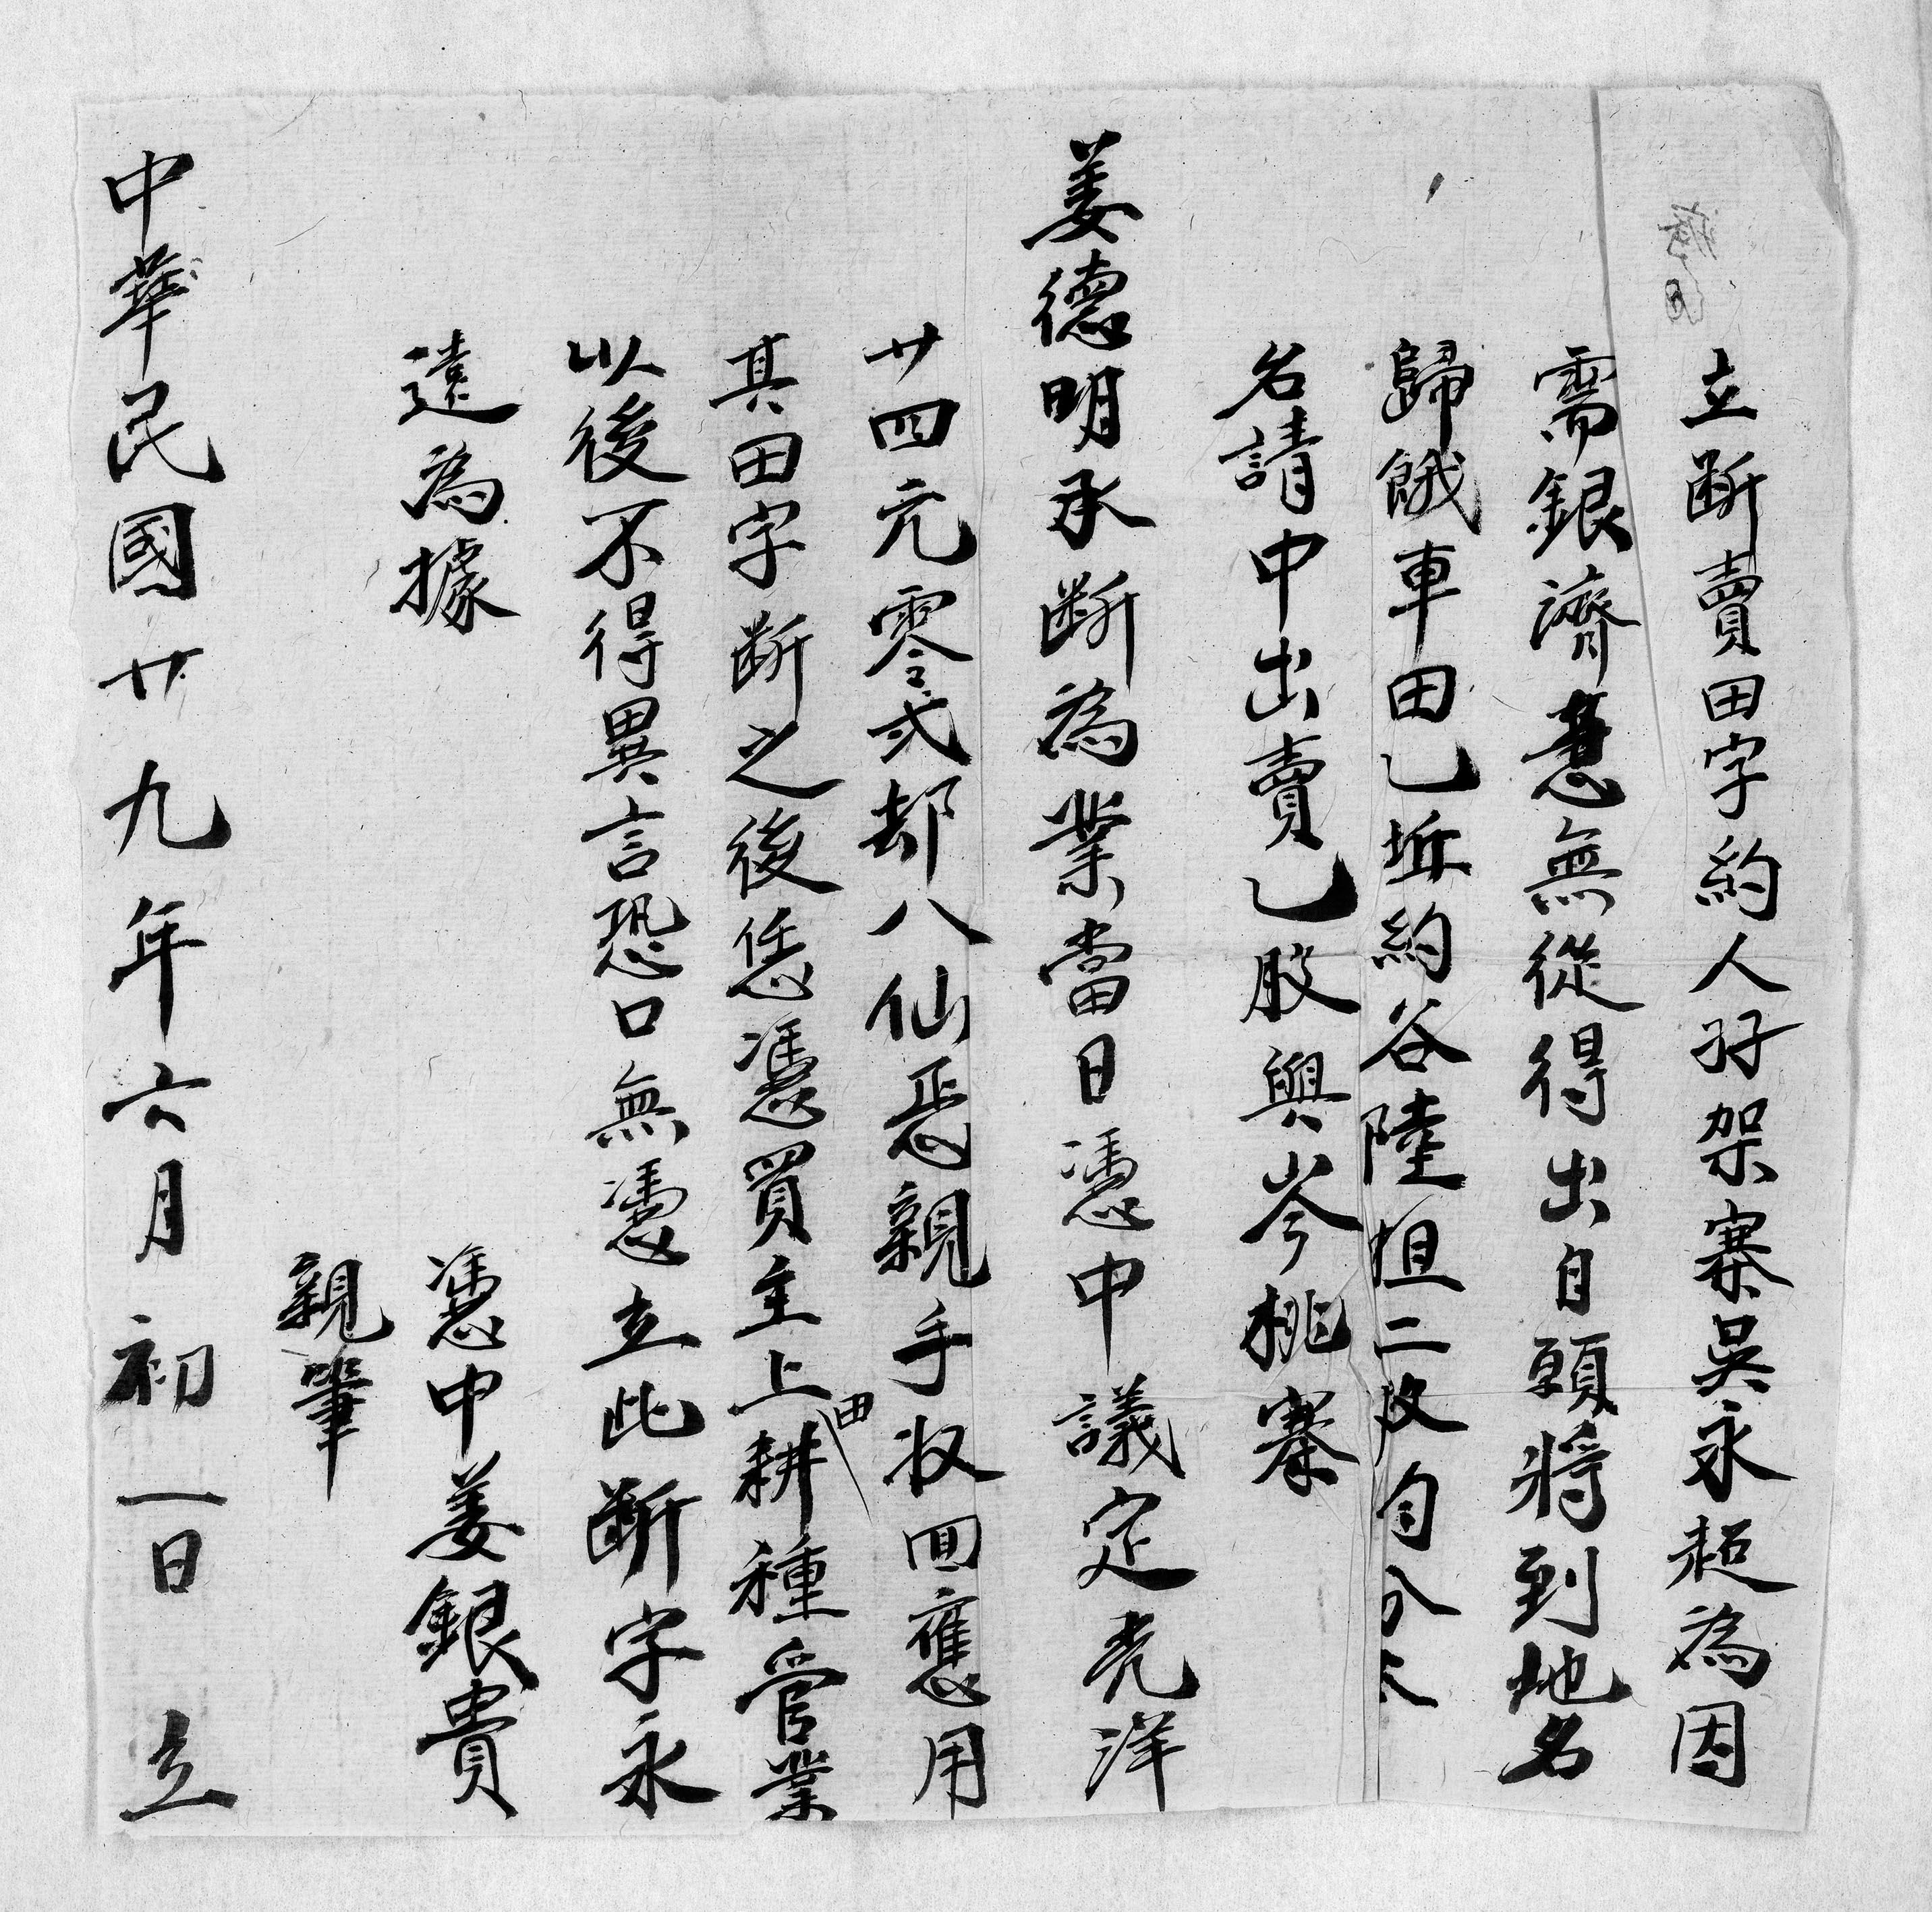 立断賣田字約人孖架寨吳永超為因
需銀濟急無從得出自願将到地名
歸餓車田乙坵約谷陸担二股均分本
名請中出賣乙股與岑桃寨
姜德明承断為業當日憑中議定光洋
廿四元零弍却八仙恁親手收囬應用
其田字断之後恁憑買主上田耕種管業
以後不得異言恐口無憑立此断字永
遠為據
憑中姜銀貴
親筆
中華民國廿九年六月初一日立